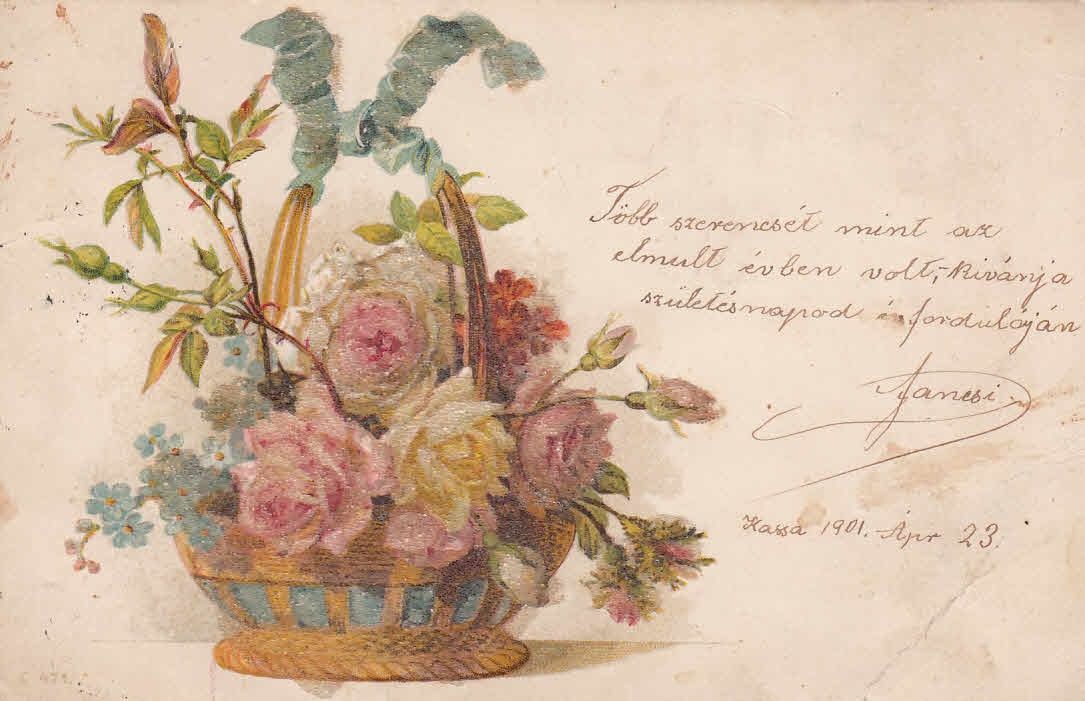 Több szerencsét mint az
elmult évben volt, kivánja
születésnapod évfordulóján
Jancsi
Kassa 1901. Ápr 23.